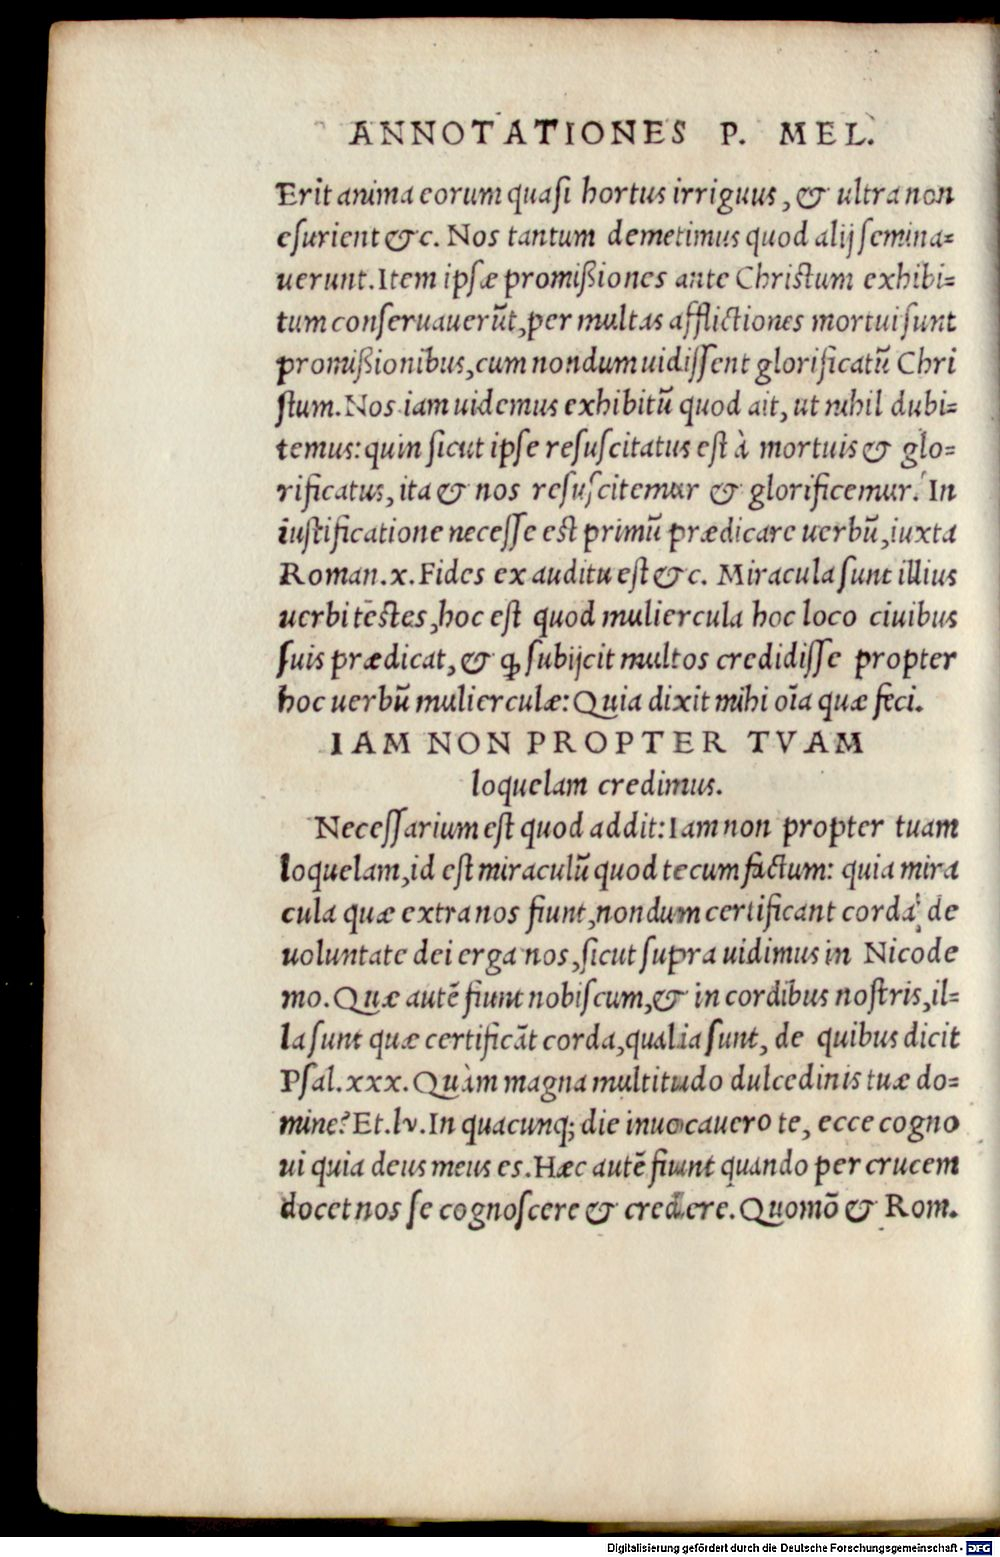 ANNOTATIONES P. MEL.
Erit anima eorum quasi hortus irriguus, & ultra non
esurient &c. Nos tantum demetimus quod alij semina=
uerunt. Item ipsæ promißiones ante Christum exhibi=
tum conseruauerũt, per multas afflictiones mortui sunt
promißionibus, cum nondum uidissent glorificatũ Chri
stum. Nos iam uidemus exhibitũ quod ait, ut nihil dubi=
temus: quin sicut ipse resuscitatus est à mortuis & glo=
rificatus, ita & nos resuscitemur & glorificemur. In
iustificatione necesse est primũ prædicare uerbũ, iuxta
Roman. x. Fides ex auditu est &c. Miracula sunt illius
uerbi testes, hoc est quod muliercula hoc loco ciuibus
suis prædicat, & ꝙ subijcit multos credidisse propter
hoc uerbũ mulierculæ: Quia dixit mihi oĩa quæ feci.
IAM NON PROPTER TVAM
loquelam credimus.
Necessarium est quod addit: Iam non propter tuam
loquelam, id est miraculũ quod tecum factum: quia mira
cula quæ extra nos fiunt, nondum certificant corda de
uoluntate dei erga nos, sicut supra uidimus in Nicode
mo. Quæ autẽ fiunt nobiscum, & in cordibus nostris, il=
la sunt quæ certificãt corda, qualia sunt, de quibus dicit
Psal. xxx. Quàm magna multitudo dulcedinis tuæ do=
mine? Et. lv. In quacunq; die inuocauero te, ecce cogno
ui quia deus meus es. Hæc autẽ fiunt quando per crucem
docet nos se cognoscere & credere. Quomõ & Rom.
Digitalisierung gefördert durch die Deutsche Forschungsgemeinschaft - DFG